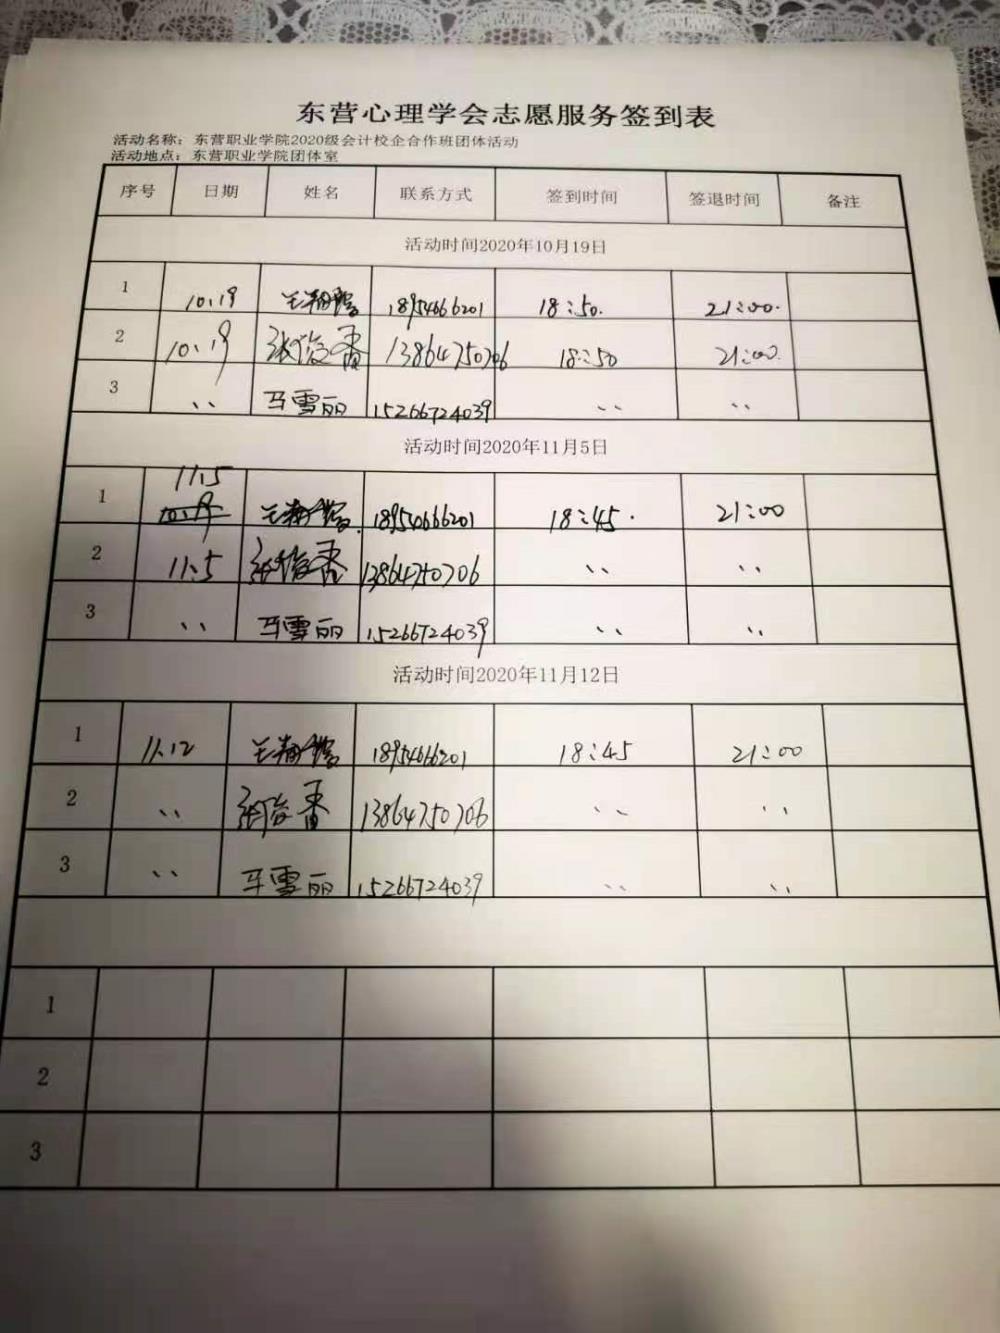 东营心理学会志愿服务签到表
活动名称：东营职业学院2020级会计校企合作班团体活动
活动地点：东营职业学院团体室
序号 日期 姓名 联系方式 签到时间 签退时间 备注
活动时间2020年10月19日
1 10.19 18954666201 18:50. 21:00.
2 10.19 张俊香 13864750706 18:50 21:00.
3 、、 马雪丽 15266724039 、、 、、
活动时间2020年11月5日
11.5
1 18954666201 18:45. 21:00
2 11.5 张俊香 13864750706 、、 、、
3 、、 马雪丽 15266724039 、、 、、
活动时间2020年11月12日
1 11.12 18954666201 18:45 21:00
2 、、 张俊香 13864750706 、、 、、
3 、、 马雪丽 15266724039 、、 、、
1
2
3